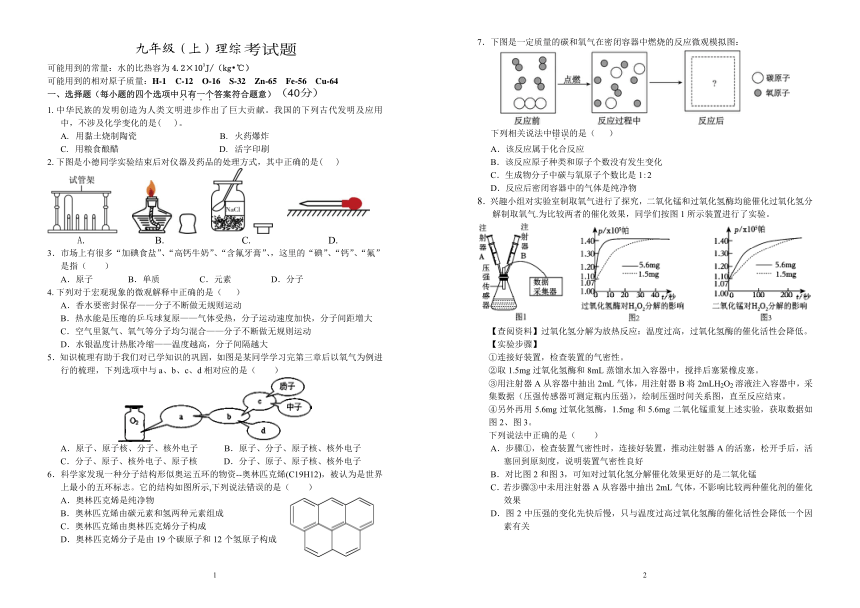 九年级（上）理综考试题
可能用到的常量：水的比热容为4.2×10³J/（kg•℃）
可能用到的相对原子质量：H-1 C-12 O-16 S-32 Zn-65 Fe-56 Cu-64
一、选择题（每小题的四个选项中只有一个答案符合题意）（40分）
1.中华民族的发明创造为人类文明进步作出了巨大贡献。我国的下列古代发明及应用
中，不涉及化学变化的是( )。
A．用黏土烧制陶瓷 B．火药爆炸
C．用粮食酿醋 D．活字印刷
2.下图是小德同学实验结束后对仪器及药品的处理方式，其中正确的是( )
试管架
NaCl
A. B. C. D.
3．市场上有很多“加碘食盐”、“高钙牛奶”、“含氟牙膏”、，这里的“碘”、“钙”、“氟”
是指（ ）
A．原子 B．单质 C．元素 D．分子
4.下列对于宏观现象的微观解释中正确的是（ ）
A．香水要密封保存——分子不断做无规则运动
B．热水能是压瘪的乒乓球复原——气体受热，分子运动速度加快，分子间距增大
C．空气里氮气、氧气等分子均匀混合——分子不断做无规则运动
D．水银温度计热胀冷缩——温度越高，分子间隔越大
5．知识梳理有助于我们对已学知识的巩固，如图是某同学学习完第三章后以氧气为例进
行的梳理，下列选项中与a、b、c、d相对应的是（ ）
O₂
a
b
c
d
质子
中子
A．原子、原子核、分子、核外电子 B．原子、分子、原子核、核外电子
C．分子、原子、核外电子、原子核 D．分子、原子、原子核、核外电子
6．科学家发现一种分子结构形似奥运五环的物质--奥林匹克烯(C19H12)，被认为是世界
上最小的五环标志。它的结构如图所示,下列说法错误的是（ ）
A．奥林匹克烯是纯净物
B．奥林匹克烯由碳元素和氢两种元素组成
C．奥林匹克烯由奥林匹克烯分子构成
D．奥林匹克烯分子是由19个碳原子和12个氢原子构成
1
7．下图是一定质量的碳和氧气在密闭容器中燃烧的反应微观模拟图：
点燃
?
碳原子
氧原子
反应前 反应过程中 反应后
下列相关说法中错误的是（ ）
A．该反应属于化合反应
B．该反应原子种类和原子个数没有发生变化
C．生成物分子中碳与氧原子个数比是1:2
D．反应后密闭容器中的气体是纯净物
8．兴趣小组对实验室制取氧气进行了探究，二氧化锰和过氧化氢酶均能催化过氧化氢分
解制取氧气.为比较两者的催化效果，同学们按图1所示装置进行了实验。
注射器A
注射器B
压强传感器
数据采集器
图1
p/x10⁵帕
1.40
1.30
1.20
1.10
1.07
1.00
5.6mg
1.5mg
0 10 20 30 40 t/秒
过氧化氢酶对H₂O₂分解的影响
图2
p/x10⁵帕
1.40
1.30
1.20
1.10
1.07
1.00
5.6mg
1.5mg
0 100 200 t/秒
二氧化锰对H₂O₂分解的影响
图3
【查阅资料】过氧化氢分解为放热反应：温度过高，过氧化氢酶的催化活性会降低。
【实验步骤】
①连接好装置，检查装置的气密性。
②取1.5mg过氧化氢酶和8mL蒸馏水加入容器中，搅拌后塞紧橡皮塞。
③用注射器A从容器中抽出2mL气体，用注射器B将2mLH₂O₂溶液注入容器中，采
集数据（压强传感器可测定瓶内压强），绘制压强时间关系图，直至反应结束。
④另外再用5.6mg过氧化氢酶，1.5mg和5.6mg二氧化锰重复上述实验，获取数据如
图2、图3。
下列说法中正确的是（ ）
A．步骤①，检查装置气密性时，连接好装置，推动注射器A的活塞，松开手后，活
塞回到原刻度，说明装置气密性良好
B．对比图2和图3，可知对过氧化氢分解催化效果更好的是二氧化锰
C．若步骤③中未用注射器A从容器中抽出2mL气体，不影响比较两种催化剂的催化
效果
D．图2中压强的变化先快后慢，只与温度过高过氧化氢酶的催化活性会降低一个因
素有关
2